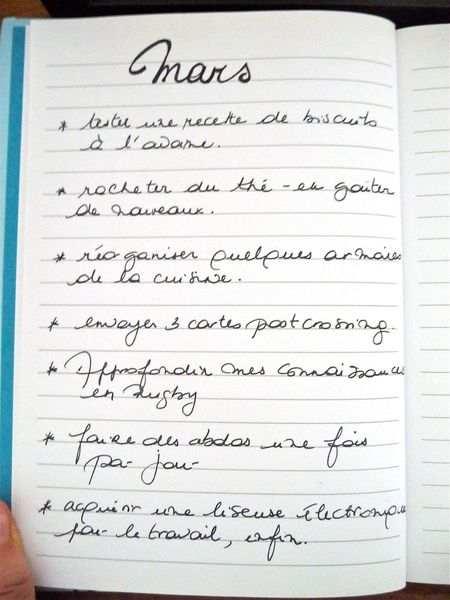 Mars
* tester une recette de biscuits
à l'avoine.
* racheter du thé - en goûter
de nouveaux.
* réorganiser quelques armoires
de la cuisine.
* envoyer 3 cartes postcrossing.
* Approfondir mes connaissances
en Rugby
* faire des abdos une fois
par jour
* acquérir une liseuse électronique
pour le travail, enfin.